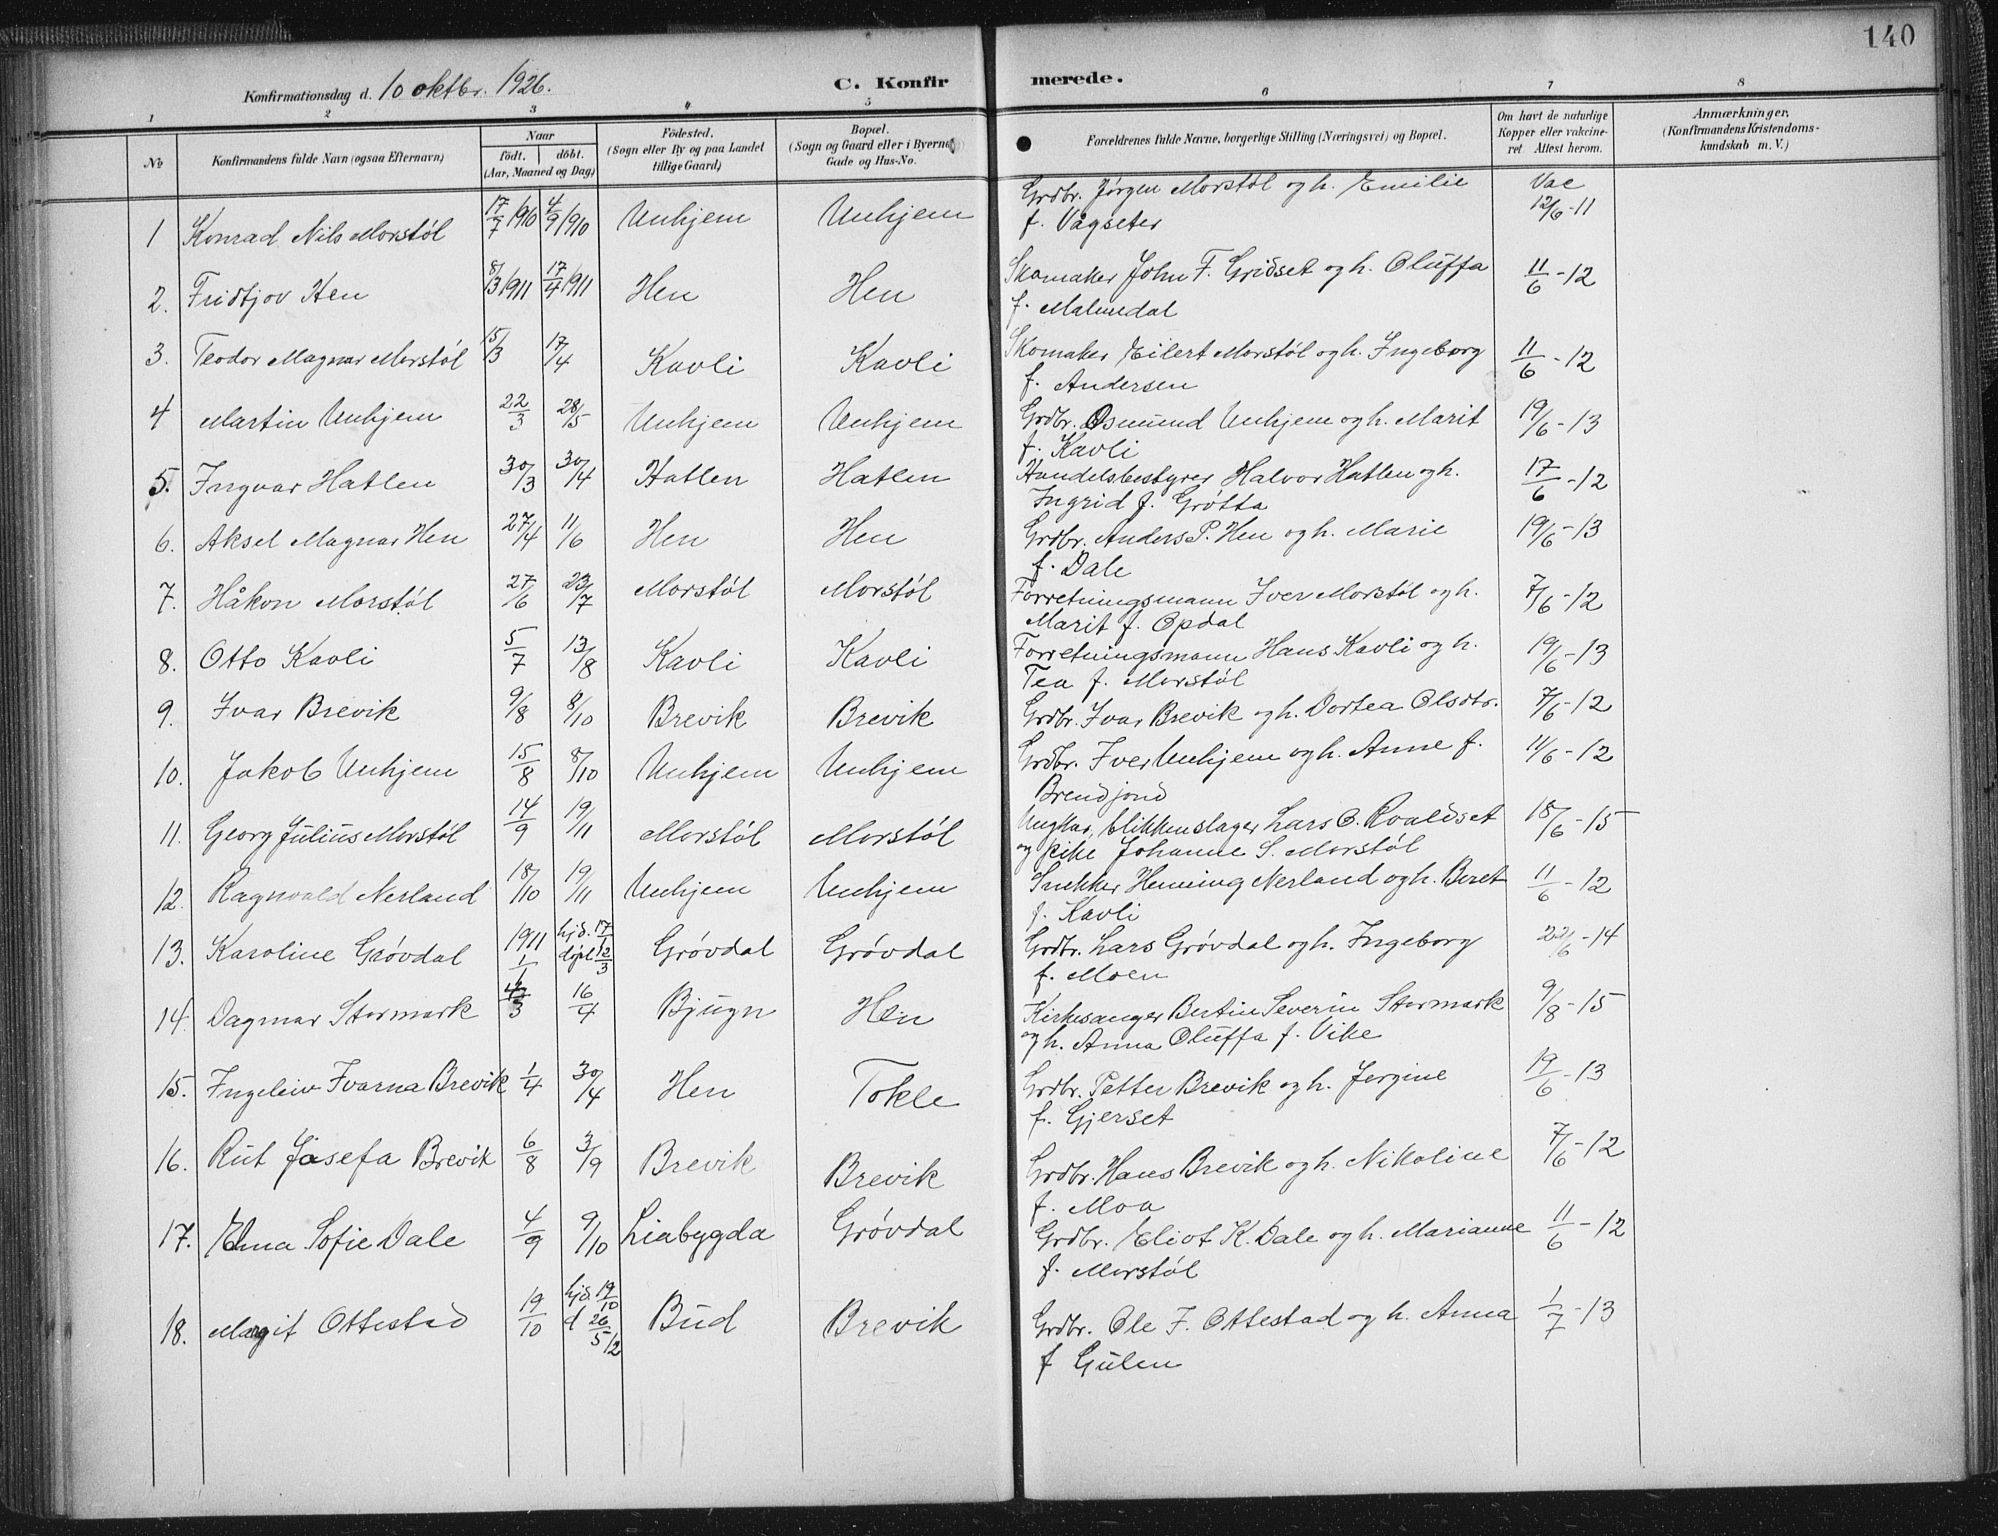 140
Konfirmationsdag d. 10 oktbr. 1926.
C. Konfirmerede.
1 2 3 4 5 6 7 8
No
Konfirmandens fulde Navn (ogsaa Efternavn)
Naar
födt. döbt.
(Aar, Maaned og Dag)
Födested.
(Sogn eller By og paa Landet
tillige Gaard)
Bopæl.
(Sogn og Gaard eller i Byerne
Gade og Hus-No.
Forældrenes fulde Navne, borgerlige Stilling (Næringsvei) og Bopæl.
Om havt de naturlige
Kopper eller vakcine-
ret Attest herom.
Anmærkninger.
(Konfirmandens Kristendoms-
kundskab m. V.)
1 Konrad Nils Morstøl 17/7 1910 4/9 1910 Unhjem Unhjem Grdbr. Jørgen Morstøl og h. Emilie Vac
f. Vågseter 12/6-11
2. Fridtjov Hen 8/3 1911 17/4 1911 Hen Hen Skomaker John F. Gridset og h. Oluffa 11/6-12
f. Malmedal
3. Teodor Magnar Morstøl 15/3 17/4 Kavli Kavli Skomaker Eilert Morstøl og h. Ingeborg 11/6-12
f. Andersen
4 Martin Unhjem 22/3 28/5 Unhjem Unhjem Grdbr. Osmund Unhjem og h. Marit 19/6-13
f. Kavli
5. Ingvar Hatlen 30/3 30/4 Hatlen Hatlen Handelsbestyrer Halvor Hatlen og h. 17/6-12
Ingrid f. Grøtta
6. Aksel Magnar Hen 27/4 11/6 Hen Hen Grdbr. Anders P. Hen og h. Marie 19/6-13
f. Dale
7. Håkon Morstøl 27/6 23/7 Morstøl Morstøl Forretningsmann Iver Morstøl og h. 7/6-12
Marit f. Opdal
8. Otto Kavli 5/7 13/8 Kavli Kavli Forretningsmann Hans Kavli og h. 19/6-13
Tea f. Morstøl
9. Ivar Brevik 9/8 8/10 Brevik Brevik Grdbr. Ivar Brevik og h. Dortea Olsdtr. 7/6-12
10. Jakob Unhjem 15/8 8/10 Unhjem Unhjem Grdbr. Iver Unhjem og h. Anne f. 11/6-12
Brendjord
11. Georg Julius Morstøl 14/9 19/11 Morstøl Morstøl Ungkar, blikkenslager Lars O. Roaldset 18/6-15
og pike Johanne S. Morstøl
12. Ragnvald Nerland 18/10 19/11 Unhjem Unhjem Snekker Henning Nerland og h. Beret 11/6-12
f. Kavli
13. Karoline Grøvdal 1911 1/1 hjd. 17/1 døpt 12/3 Grøvdal Grøvdal Grdbr. Lars Grøvdal og h. Ingeborg 22/6-14
f. Moen
14. Dagmar Stormark 16/4 Bjugn Hen Kirkesanger Bertin Severin Stormark 9/8-15
og h. Anna Oluffa f. Vike
15. Ingeleiv Ivarna Brevik 1/4 30/4 Hen Tokle Grdbr. Petter Brevik og h. Jorgine 19/6-13
f. Gjerset
16. Rut Josefa Brevik 6/8 3/9 Brevik Brevik Grdbr. Hans Brevik og h. Nikoline 7/6-12
f. Moa
17. Elma Sofie Dale 4/9 9/10 Liabygda Grøvdal Grdbr. Eliot K. Dale og h. Marianne 11/6-12
f. Morstøl
18. Margit Ottestad 19/10 hjd. 19/10 d 26/5 12 Bud Brevik Grdbr. Ole F. Ottestad og h. Anna 1/7-13
f Gulen